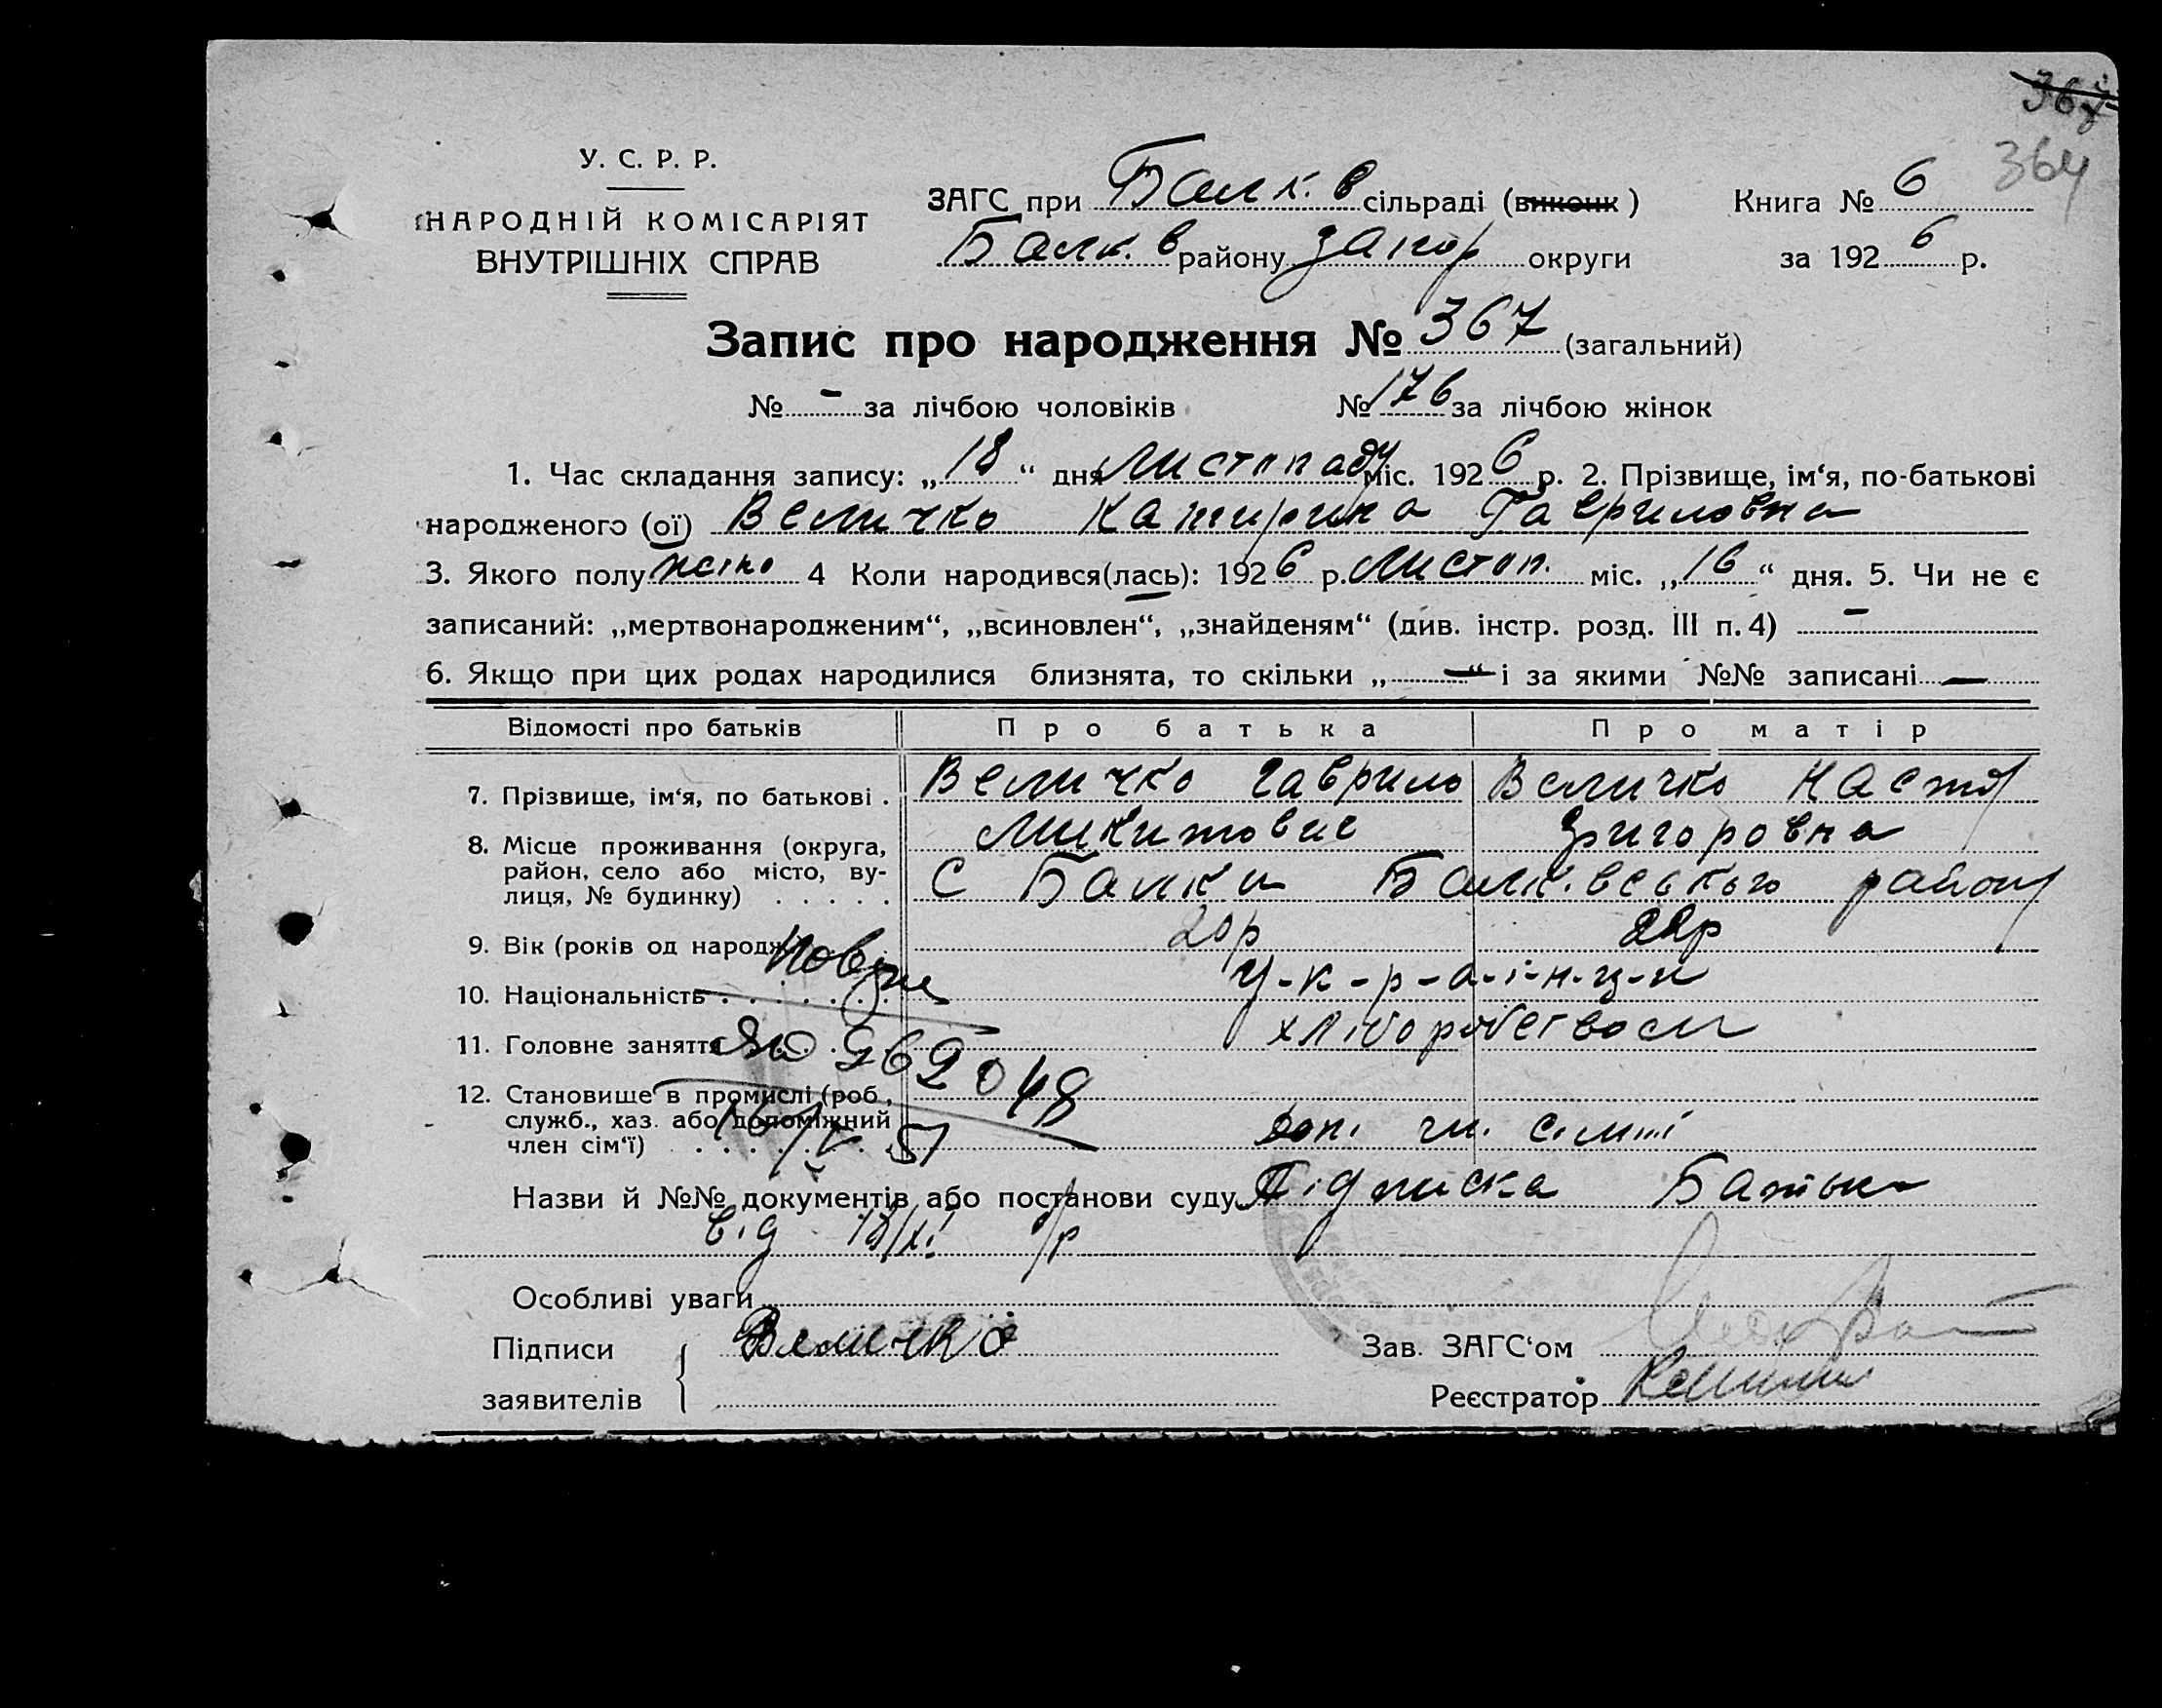 367
364
У. С. Р. Р.
НАРОДНІЙ КОМІСАРІЯТ
ВНУТРІШНІХ СПРАВ
ЗАГС при Балк. в сільраді (виконк )
Балк. в району Запор округи
Книга № 6
за 1926 р.
Запис про народження № 367 (загальний)
№ - за лічбою чоловіків № 176 за лічбою жінок
1. Час складання запису: „18“ дня Листопаду міс. 1926 р. 2. Прізвище, ім‘я, по-батькові
народженого (ої) Величко Катирина Гавриловна
3. Якого полу жіно 4 Коли народився(лась): 1926 р. Листоп. міс. „16“ дня. 5. Чи не є
записаний: „мертвонародженим“, „всиновлен“, „знайденям“ (див. інстр. розд. III п. 4) -
6. Якщо при цих родах народилися близнята, то скільки „—“ і за якими №№ записані —
Відомості про батьків Про батька Про матір
7. Прізвище, ім‘я, по батькові . Величко Гаврило Величко Настя
Микитович Григоровна
8. Місце проживання (округа,
район, село або місто, ву-
лиця, № будинку) . . . . . С Балки Балк.веського району
9. Вік (років од народж 20р 22р
10. Національність . . . . . . . У-к-р-а-ї-н-ц-и
11. Головне заняття хліборобством
12. Становище в промислі (роб.,
служб., хаз. або допоміжний
член сім‘ї) . . . . . . . . доп. чл. сімі
ЯЮ 962048
16/V 51
Назви й №№ документів або постанови суду Підписка Батька
від 18/XI б/р
Особливі уваги
Підписи
заявителів
Величко
Зав. ЗАГС‘ом
Реєстратор